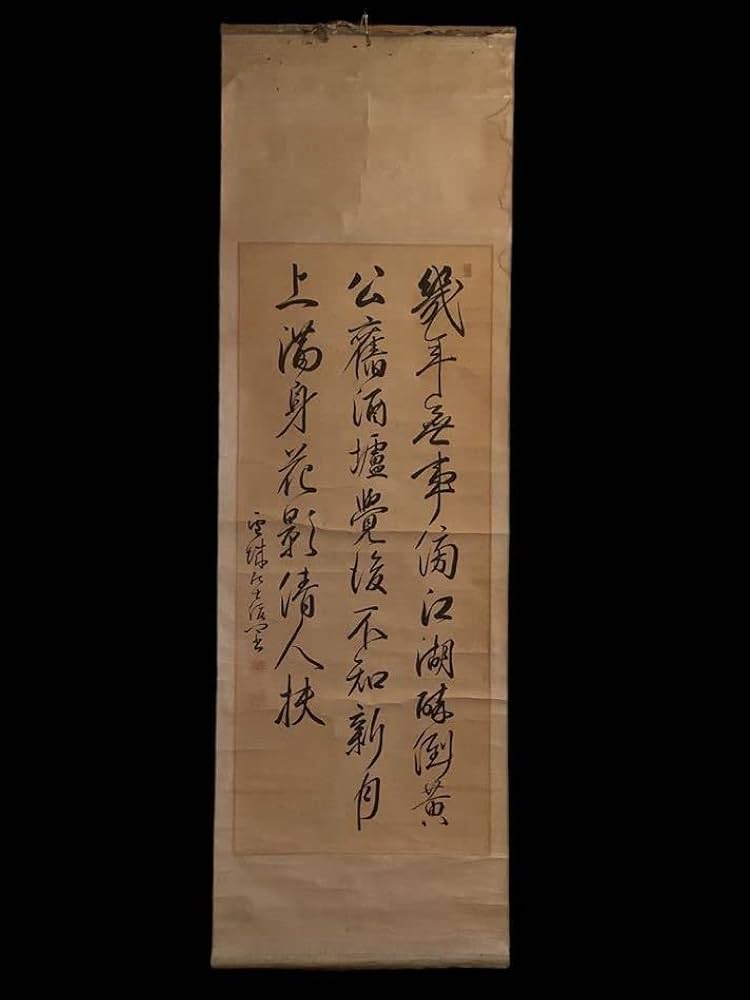 幾年無事傍江湖醉倒黃
公舊酒壚覺後不知新月
上滿身花影倩人扶